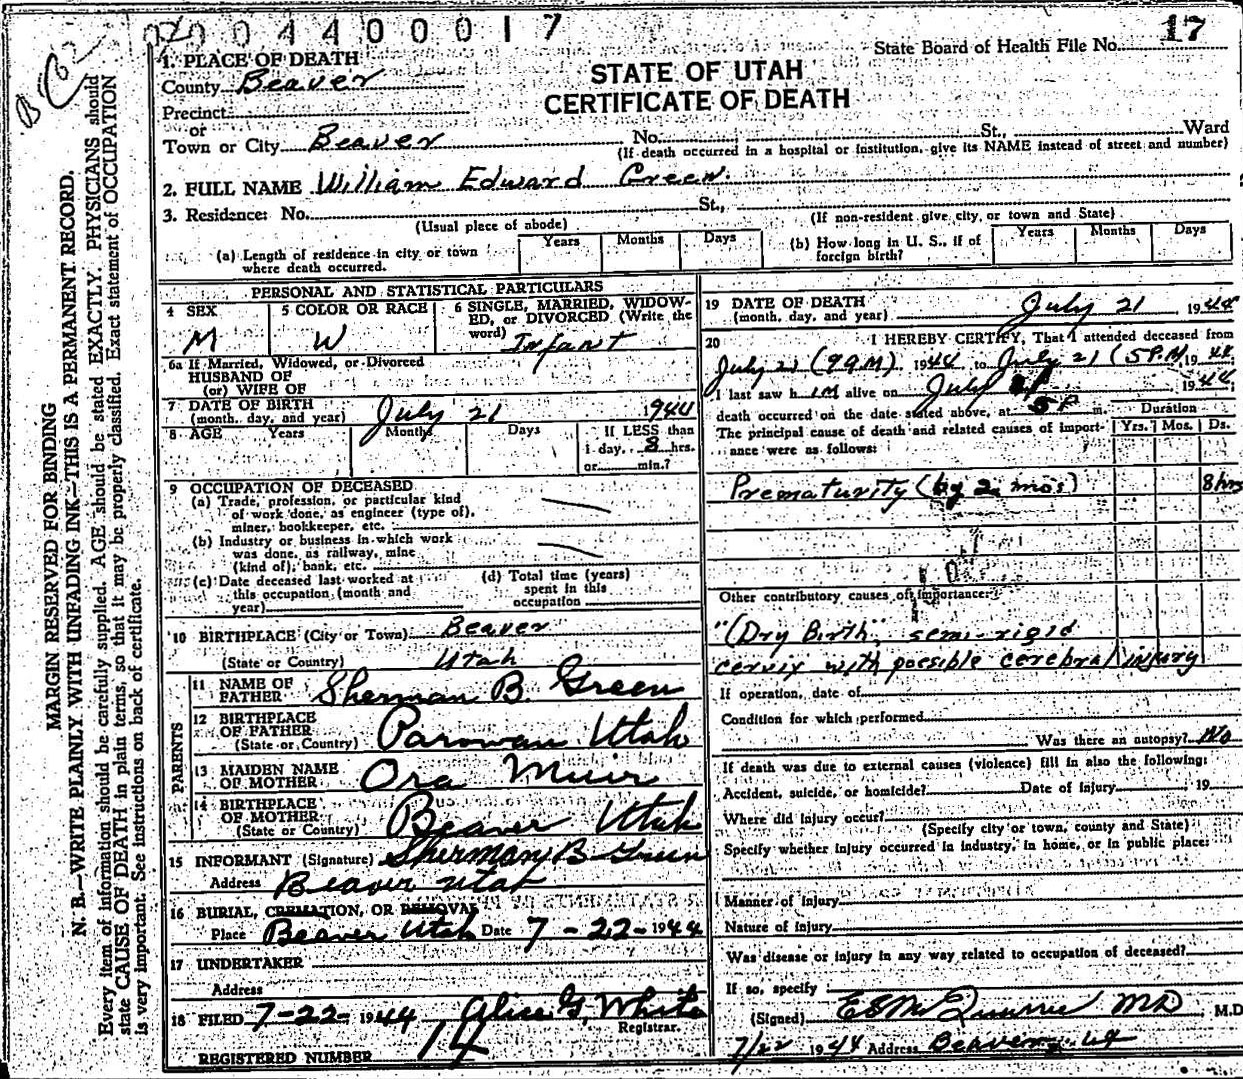 0 0 4 4 0 0 0 1 7
State Board of Health File No. 17
STATE OF UTAH
CERTIFICATE OF DEATH
1. PLACE OF DEATH
County Beaver
Precinct
or
Town or City Beaver No. St., Ward
(If death occurred in a hospital or institution, give its NAME instead of street and number)
2. FULL NAME William Edward Green
3. Residence: No. St.,
(Usual place of abode) (If non-resident give city, or town and State)
(a) Length of residence in city or town where death occurred. Years Months Days
(b) How long in U. S., if of foreign birth? Years Months Days
MARGIN RESERVED FOR BINDING
N. B.—WRITE PLAINLY WITH UNFADING INK—THIS IS A PERMANENT RECORD.
Every item of information should be carefully supplied. AGE should be stated EXACTLY. PHYSICIANS should
state CAUSE OF DEATH in plain terms, so that it may be properly classified. Exact statement of OCCUPATION
is very important. See instructions on back of certificate.
PERSONAL AND STATISTICAL PARTICULARS
4 SEX M
5 COLOR OR RACE W
6 SINGLE, MARRIED, WIDOWED, or DIVORCED (Write the word) Infant
6a If Married, Widowed, or Divorced
HUSBAND OF
(or) WIFE OF
7 DATE OF BIRTH
(month, day, and year) July 21 1944
8 AGE Years Months Days If LESS than
1 day, 8 hrs.
or min.?
9 OCCUPATION OF DECEASED
(a) Trade, profession, or particular kind
of work done, as engineer (type of),
miner, bookkeeper, etc.
(b) Industry or business in which work
was done, as railway, mine
(kind of), bank, etc.
(c) Date deceased last worked at
this occupation (month and
year)
(d) Total time (years)
spent in this
occupation
10 BIRTHPLACE (City or Town) Beaver
(State or Country) Utah
PARENTS
11 NAME OF
FATHER Sherman B. Green
12 BIRTHPLACE
OF FATHER
(State or Country) Parowan Utah
13 MAIDEN NAME
OF MOTHER Ora Muir
14 BIRTHPLACE
OF MOTHER
(State or Country) Beaver Utah
15 INFORMANT (Signature) Sherman B Green
Address Beaver Utah
16 BURIAL, CREMATION, OR REMOVAL
Place Beaver Utah Date 7-22-1944
17 UNDERTAKER
Address
18 FILED 7-22-1944 Alice G. White
Registrar.
REGISTERED NUMBER 14
19 DATE OF DEATH
(month, day, and year) July 21 1944
20 I HEREBY CERTIFY, That I attended deceased from
July 21 (9 A M) 1944 to July 21 (5 P.M) 1944,
I last saw h im alive on July 21 1944,
death occurred on the date stated above, at 5 P m.
The principal cause of death and related causes of importance were as follows:
Duration
Yrs. Mos. Ds.
Prematurity (by 2 mos) 8 hrs
Other contributory causes of importance:
"(Dry Birth", semi-rigid
cervix with possible cerebral injury
If operation, date of
Condition for which performed
Was there an autopsy? No
If death was due to external causes (violence) fill in also the following:
Accident, suicide, or homicide? Date of injury 19
Where did injury occur?
(Specify city or town, county and State)
Specify whether injury occurred in industry, in home, or in public place:
Manner of injury
Nature of injury
Was disease or injury in any way related to occupation of deceased?
If so, specify
(Signed) M D, M.D
7/22 1944 Address Beaver, Ut